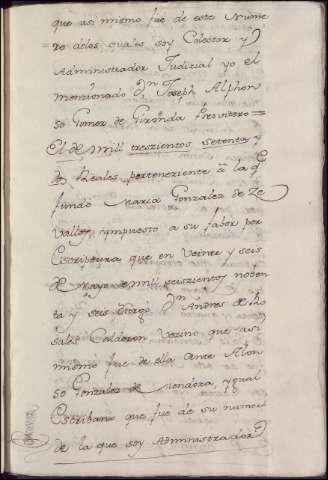 que asi mismo fué de este Nume
ro de los quales soy Colector y
Administrador Judicial yo el
mencionado Dn Joseph Alphon
so Gomez de Gironda Presvitero =
El de Mill trescientos setenta y
Reales perteneziente à la q
fundó Maria Gonzales de Ze
vallos, ympuesto a su fabor por
Escriptura que en Veinte y seis
de Mayo de mil seiscientos noben
ta y seis otorgó Dn Andres de
salz Calderon Vezino que asi
mismo fue de ella ante Alon
so Gonzales de Mendoza, ygual
Escribano que fue de su numero
de la que soy Administrador